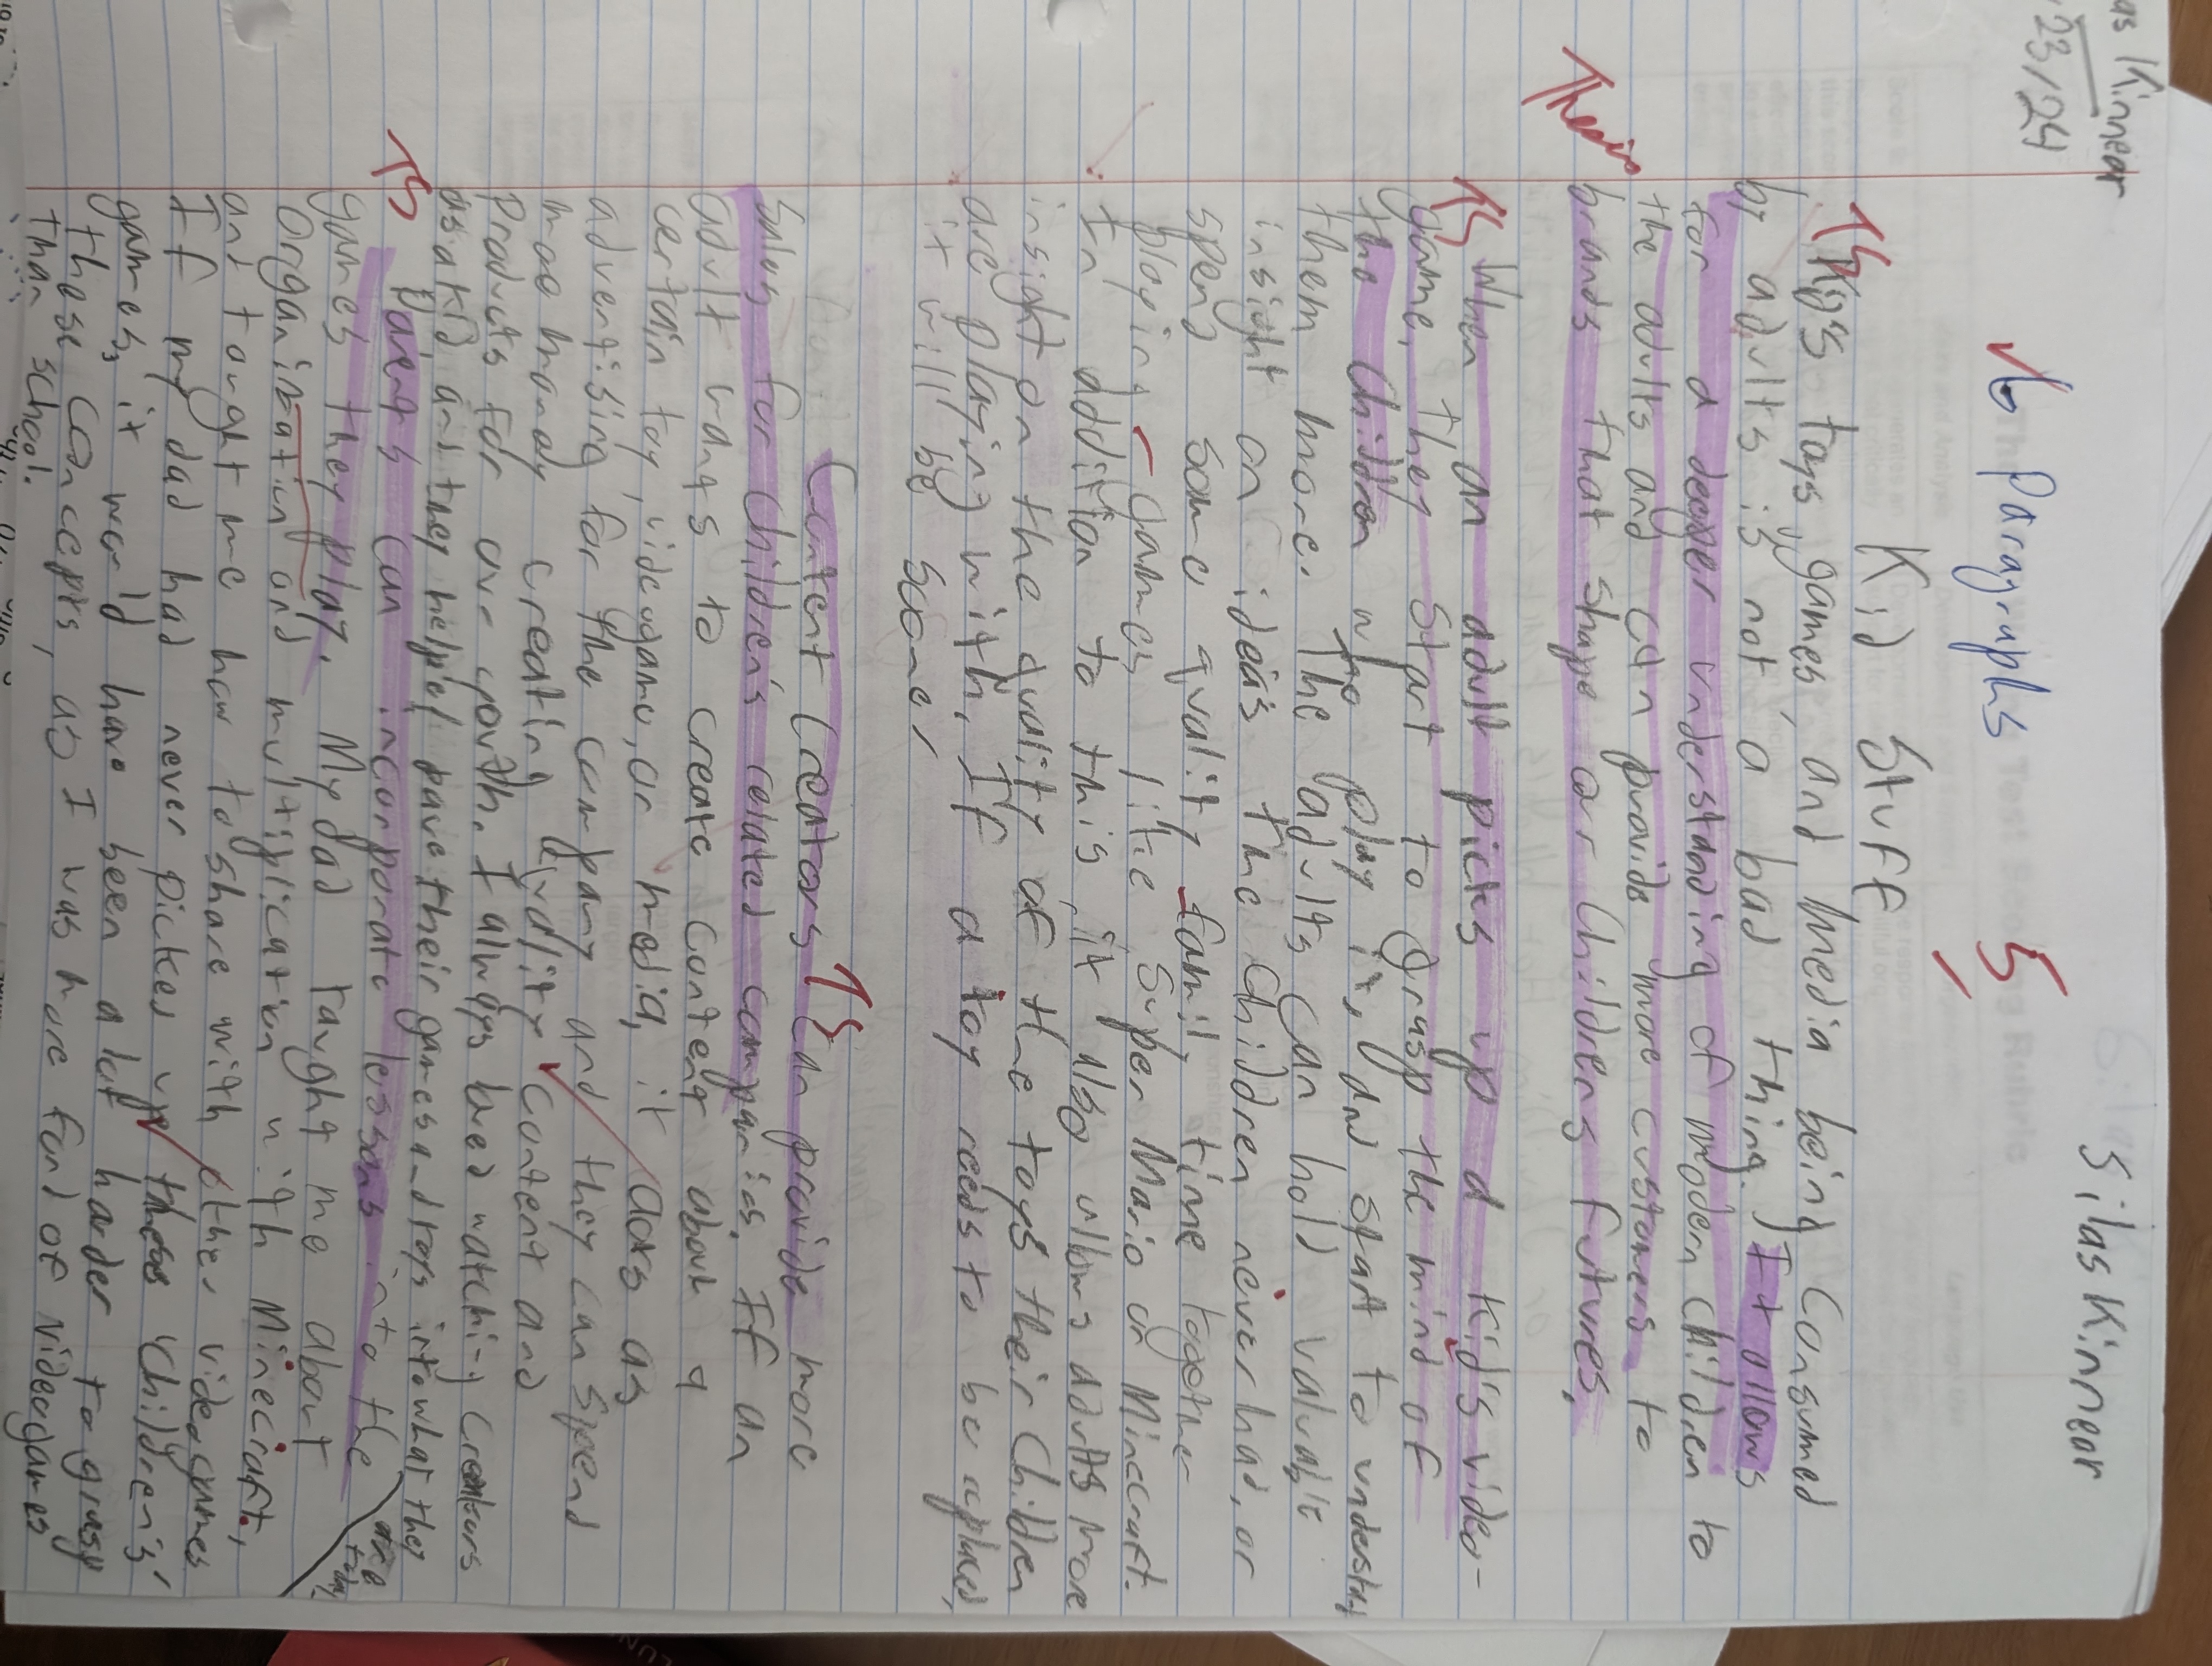 as Kinnear
Silas Kinnear
23/24
6 Paragraphs
5
Kid Stuff
TS
Kid's toys, games, and media being consumed
by adults is not a bad thing. It allows
for a deeper understanding of modern children to
the adults and can provide more customers to
Thesis
brands that shape our childrens futures.
TS
When an adult picks up a kid's video-
game, they start to grasp the mind of
the children who play it, and start to understand
them more. The adults can hold valuable
insight on ideas the children never had, or
spend some quality family time together
playing games like Super Mario or Minecraft.
In addition to this, it also allows adults more
insight on the quality of the toys their children
are playing with. If a toy needs to be replaced,
it will be sooner
TS
Content creators can provide more
sales for children's related companies. If an
adult wants to create content about a
certain toy, videogame, or media, it acts as
advertising for the company and they can spend
more money creating quality content and
products for our youth. I always loved watching creators
as a kid, and they helped pave their games and toys into what they
are today.
TS
Parents can incorporate lessons into the
games they play. My dad taught me about
organization and multiplication with Minecraft,
and taught me how to share with other videogames
If my dad had never picked up these 'Children's'
games, it would have been a lot harder to grasp
these concepts, as I was more fond of videogames
than school.